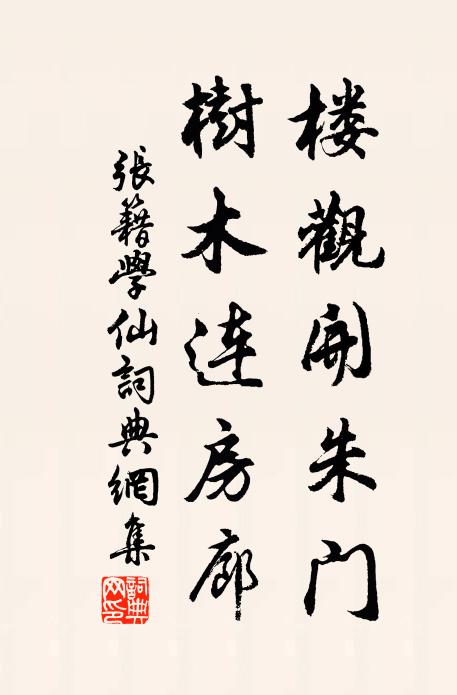 楼觀開朱门
樹木连房廊
張籍學仙詞典網集
詞典网印